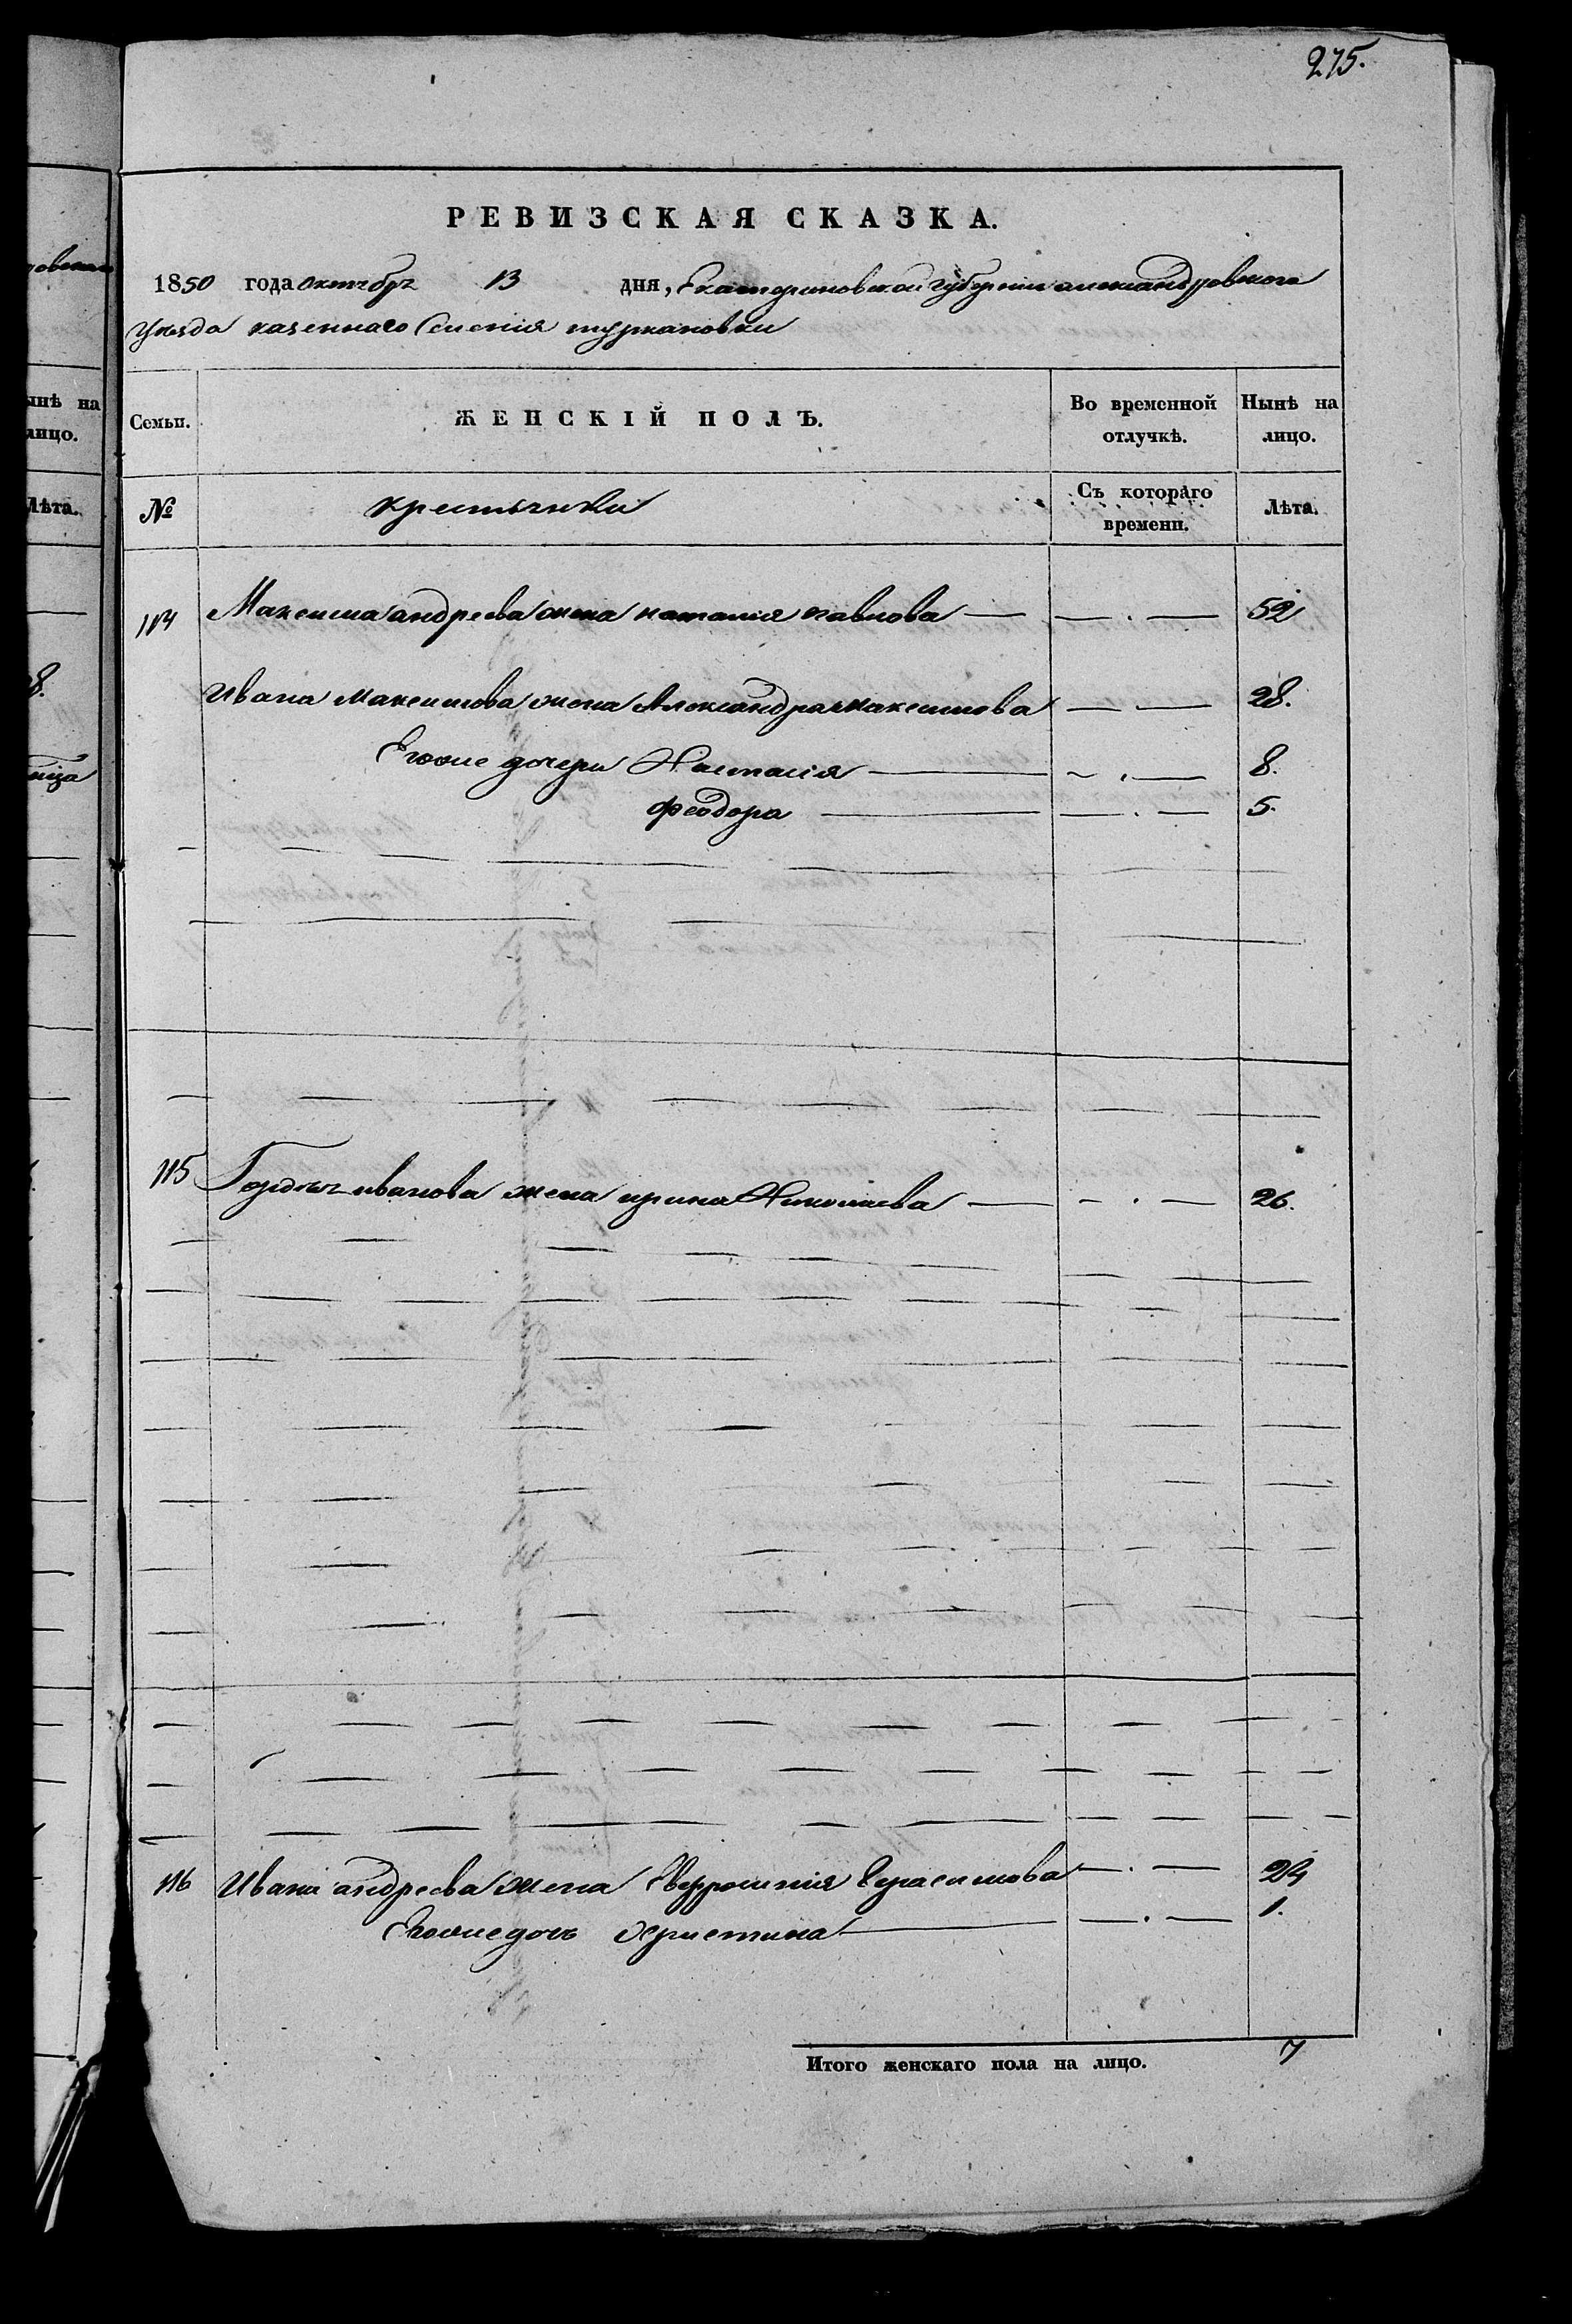 275.
РЕВИЗСКАЯ СКАЗКА.
1850 года октября 13 дня, Екатериновской губернии александровского
уезда казенного Селенія туркановки
Семьи. ЖЕНСКІЙ ПОЛЪ. Во временной отлучкѣ. Нынѣ на лицо.
№ крестьянки Съ котораго времени. Лѣта.
114 Максима андреева жена наталия павлова — . — 52
Ивана максимова жена Александра максимова — . — 28.
Егоже дочери Настасія — . — 8.
феодора — . — 5.
115 Гордея иванова жена ирина Николаева — . — 26.
116 Ивана андреева жена Евфросинія Герасимова — . — 24
Егоже дочь христина — . — 1.
Итого женскаго пола на лицо. 7
ынѣ на
лицо.
Лѣта.
8.